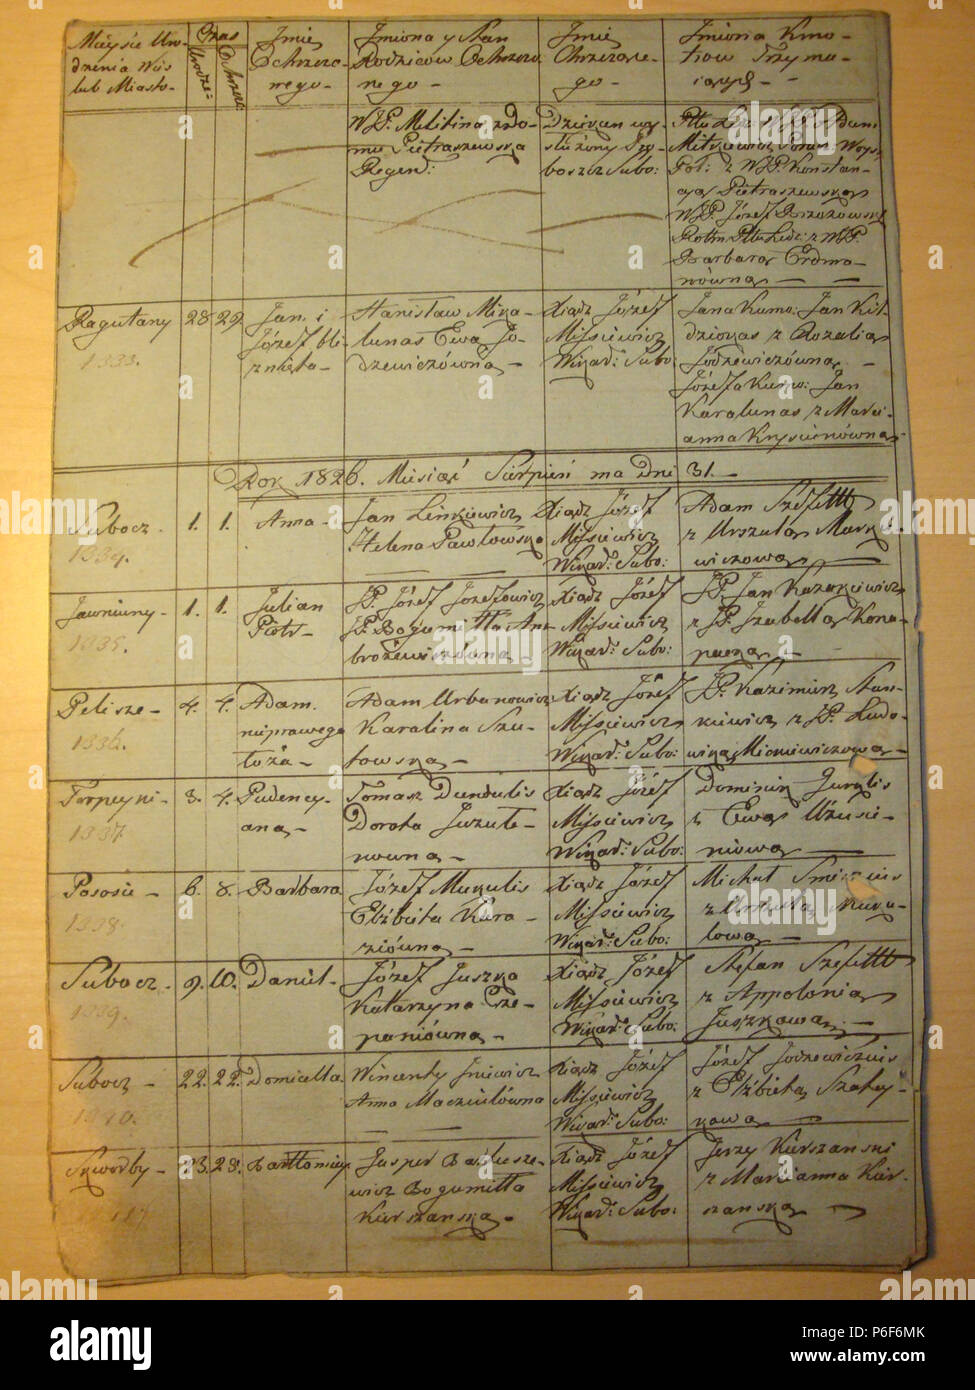 Miejsce Uro-
dzenia Wieś
lub Miasto-
Czas
Urodze:
Ochrzcz:
Imie
Ochrzczo-
nego-
Imiona y Stan
Rodziców Ochrzczo
nego-
Imie
Chrzczące-
go-
Imiona Kmo-
trow Trzyma-
jących
WJP. Melitina z do-
mu Pietraszewska
Regend:
Dziekan wy-
służony Pro-
boszcz Subo:
Mickiewicz
Pol: z WJP. Konstan-
cyą Pietraszewską
WJP. Józef Brzozowski
Rotm z WJP.
Barbarą Erdma-
nówną —
Ragutany
1933.
28
29.
Jan i
Józef bli-
znięta-
Stanisław Mika-
lunas Ewa Jo-
dzewiczówna -
Xiądz Józef
Missiewicz
Wikar: Subo:
Jana Kumo: Jan Kił-
dziokas z Rozalią
Jodzewiczówną -
Józefa Kumo: Jan
Karalunas z Mary-
anna Kryscinówną
Rok 1826. Miesiąc Sierpień ma dni 31. -
Subocz -
1934.
1.
1.
Anna -
Jan Linkiewicz
Helena Pawłowska
Xiądz Józef
Missiewicz
Wikar: Subo:
Adam Szefettt
z Urszulą Mark-
wiczową —
Jawniuny-
1935.
1.
1.
Julian
Piotr -
JP. Józef Józefowicz
JP. Bogumiłła Am-
brożewiczówna -
Xiądz Józef
Missiewicz
Wikar: Subo:
JP. Jan Kazakiewicz
z JP. Izabellą Kona-
packą -
Pelisze -
1936.
4.
4.
Adam
nieprawego
łoża -
Adam Urbanowicz
Karalina Szu-
towska -
Xiądz Józef
Missiewicz
Wikar: Subo:
JP. Kazimierz Stan-
kiewicz z JP. Ludo-
wiką Mickiewiczową -
Torpeyki -
1937
3.
4.
Pudency-
ana -
Tomasz Dundulis
Dorota Juzule-
nowna -
Xiądz Józef
Missiewicz
Wikar: Subo:
Dominik Juralis
z Ewą
niową -
Pososie -
1938.
6.
8.
Barbara
Józef Mukulis
Elżbieta Kura-
ziówna -
Xiądz Józef
Missiewicz
Wikar: Subo:
Michał
z Urszulą Muku-
lową -
Subocz -
1939.
9.
10.
Daniel -
Józef Juszka
Katarzyna Cze-
paniówna -
Xiądz Józef
Missiewicz
Wikar: Subo:
Stefan Szefettt
z Appolonią
Juszkową -
Subocz -
1940.
22.
22.
Domicella.
Wincenty Jniewicz
Anna Maczulówna
Xiądz Józef
Missiewicz
Wikar: Subo:
Józef Jodzewiczius
z Elżbietą Szaty-
kową -
Skworby -
23.
23.
Bartłomiey
Jasper Bartusze-
wicz Bogumiłła
Kurszanska -
Xiądz Józef
Missiewicz
Wikar: Subo:
Jerzy Kurszanski
z Maryanna Kur-
szanską -
alamy
Image ID: P6F6MK
www.alamy.com